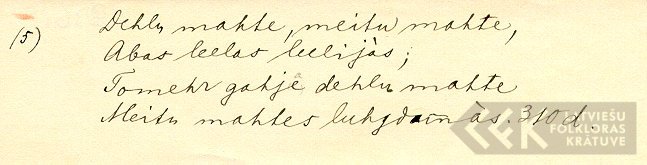 (5) Dehlu mahte, meitu mahte,
Abas leelas leelijàs;
Tomehr gahja dehlu mahte
Meitu mahtes luhgdamàs. 310 d.
LATVIEŠU
FOLKLORAS
KRĀTUVE